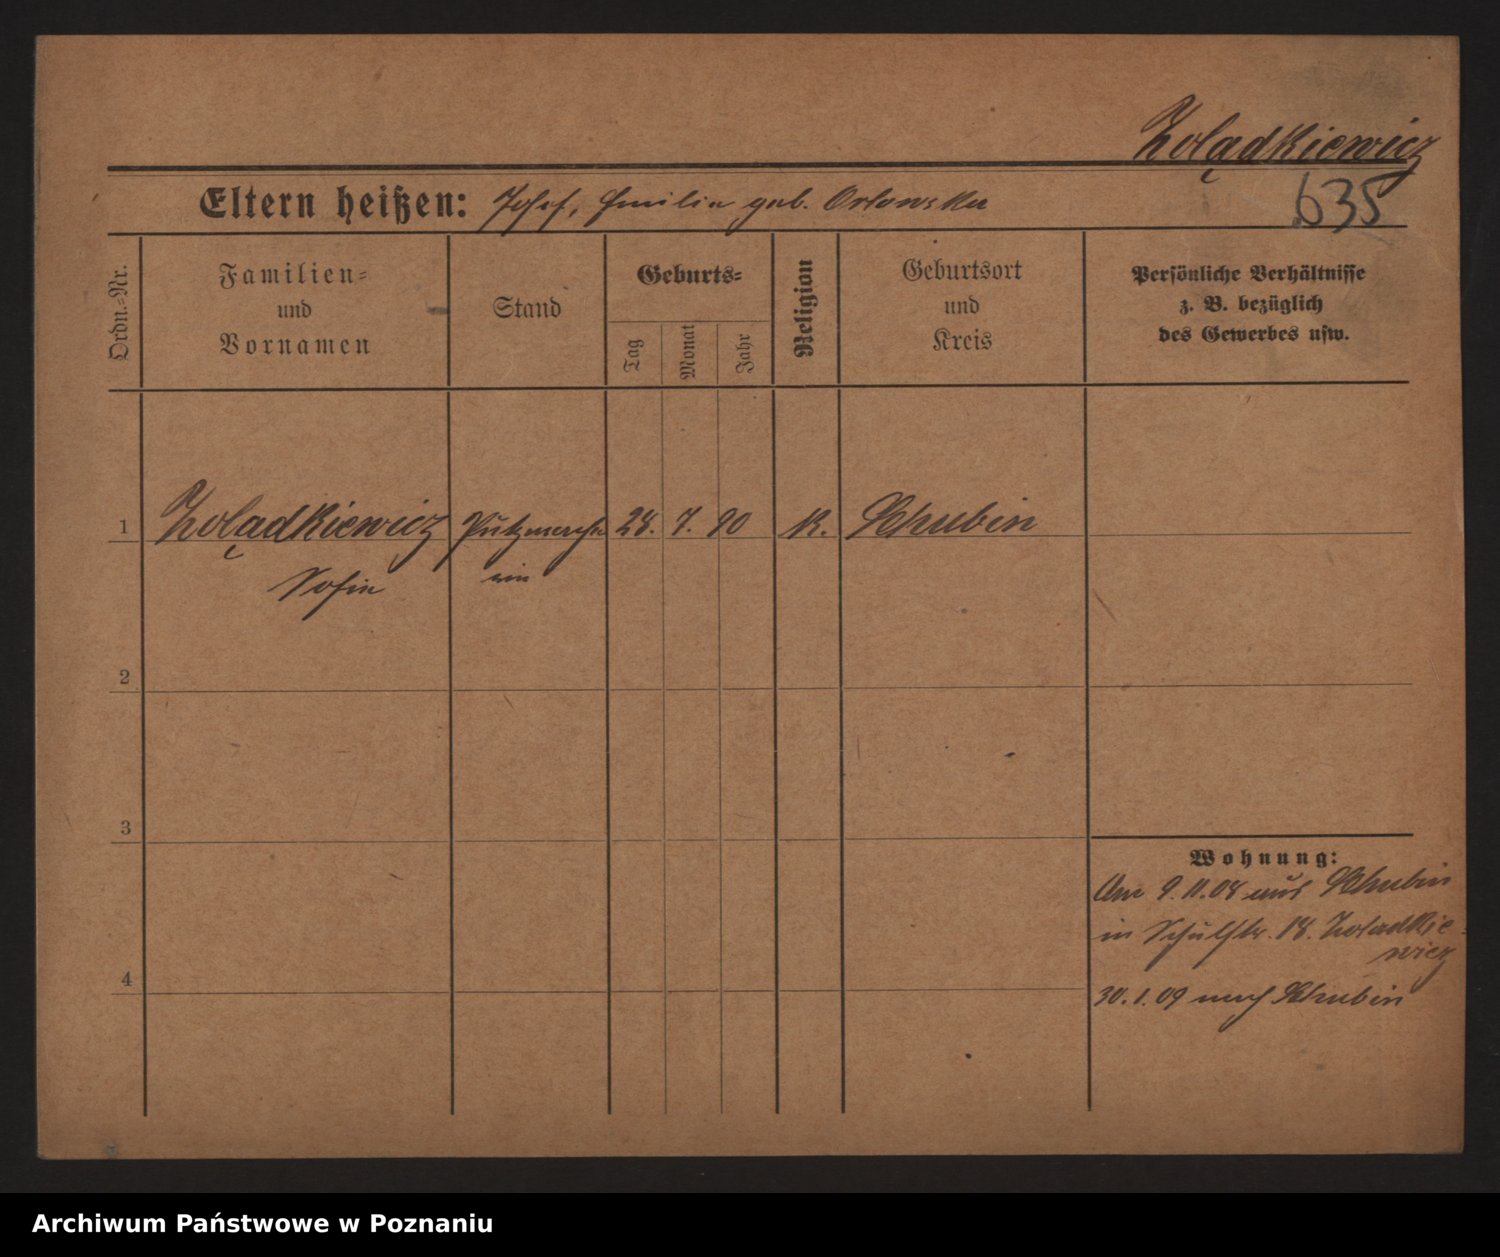 Żołądkiewicz
635
Eltern heißen: Josef, Emilia geb. Orlowska
Ordn.-Nr.
Familien-
und
Vornamen
Stand
Geburts-
Tag
Monat
Jahr
Religion
Geburtsort
und
Kreis
Persönliche Verhältnisse
z. B. bezüglich
des Gewerbes usw.
1 Żołądkiewicz Putzmache 28. 7. 90 K. Schubin
Sofie rin
2
3
4
Wohnung:
Am 9.11.08 aus Schubin
in Schulstr. 18. Zoladkie-
wicz
30.1.09 nach Schubin
Archiwum Państwowe w Poznaniu